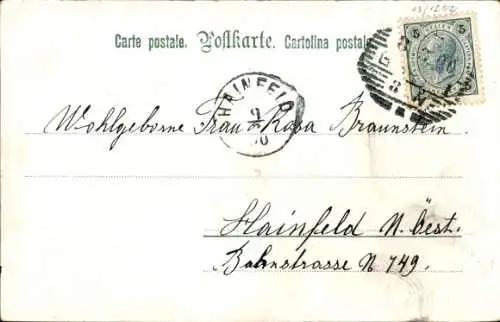 Carte postale. Postkarte. Cartolina postale.
5 5
HAINFELD
9
Wohlgeborne Frau Rosa Braunstein
Hainfeld N. Öest.
Bahnstrasse N 749.